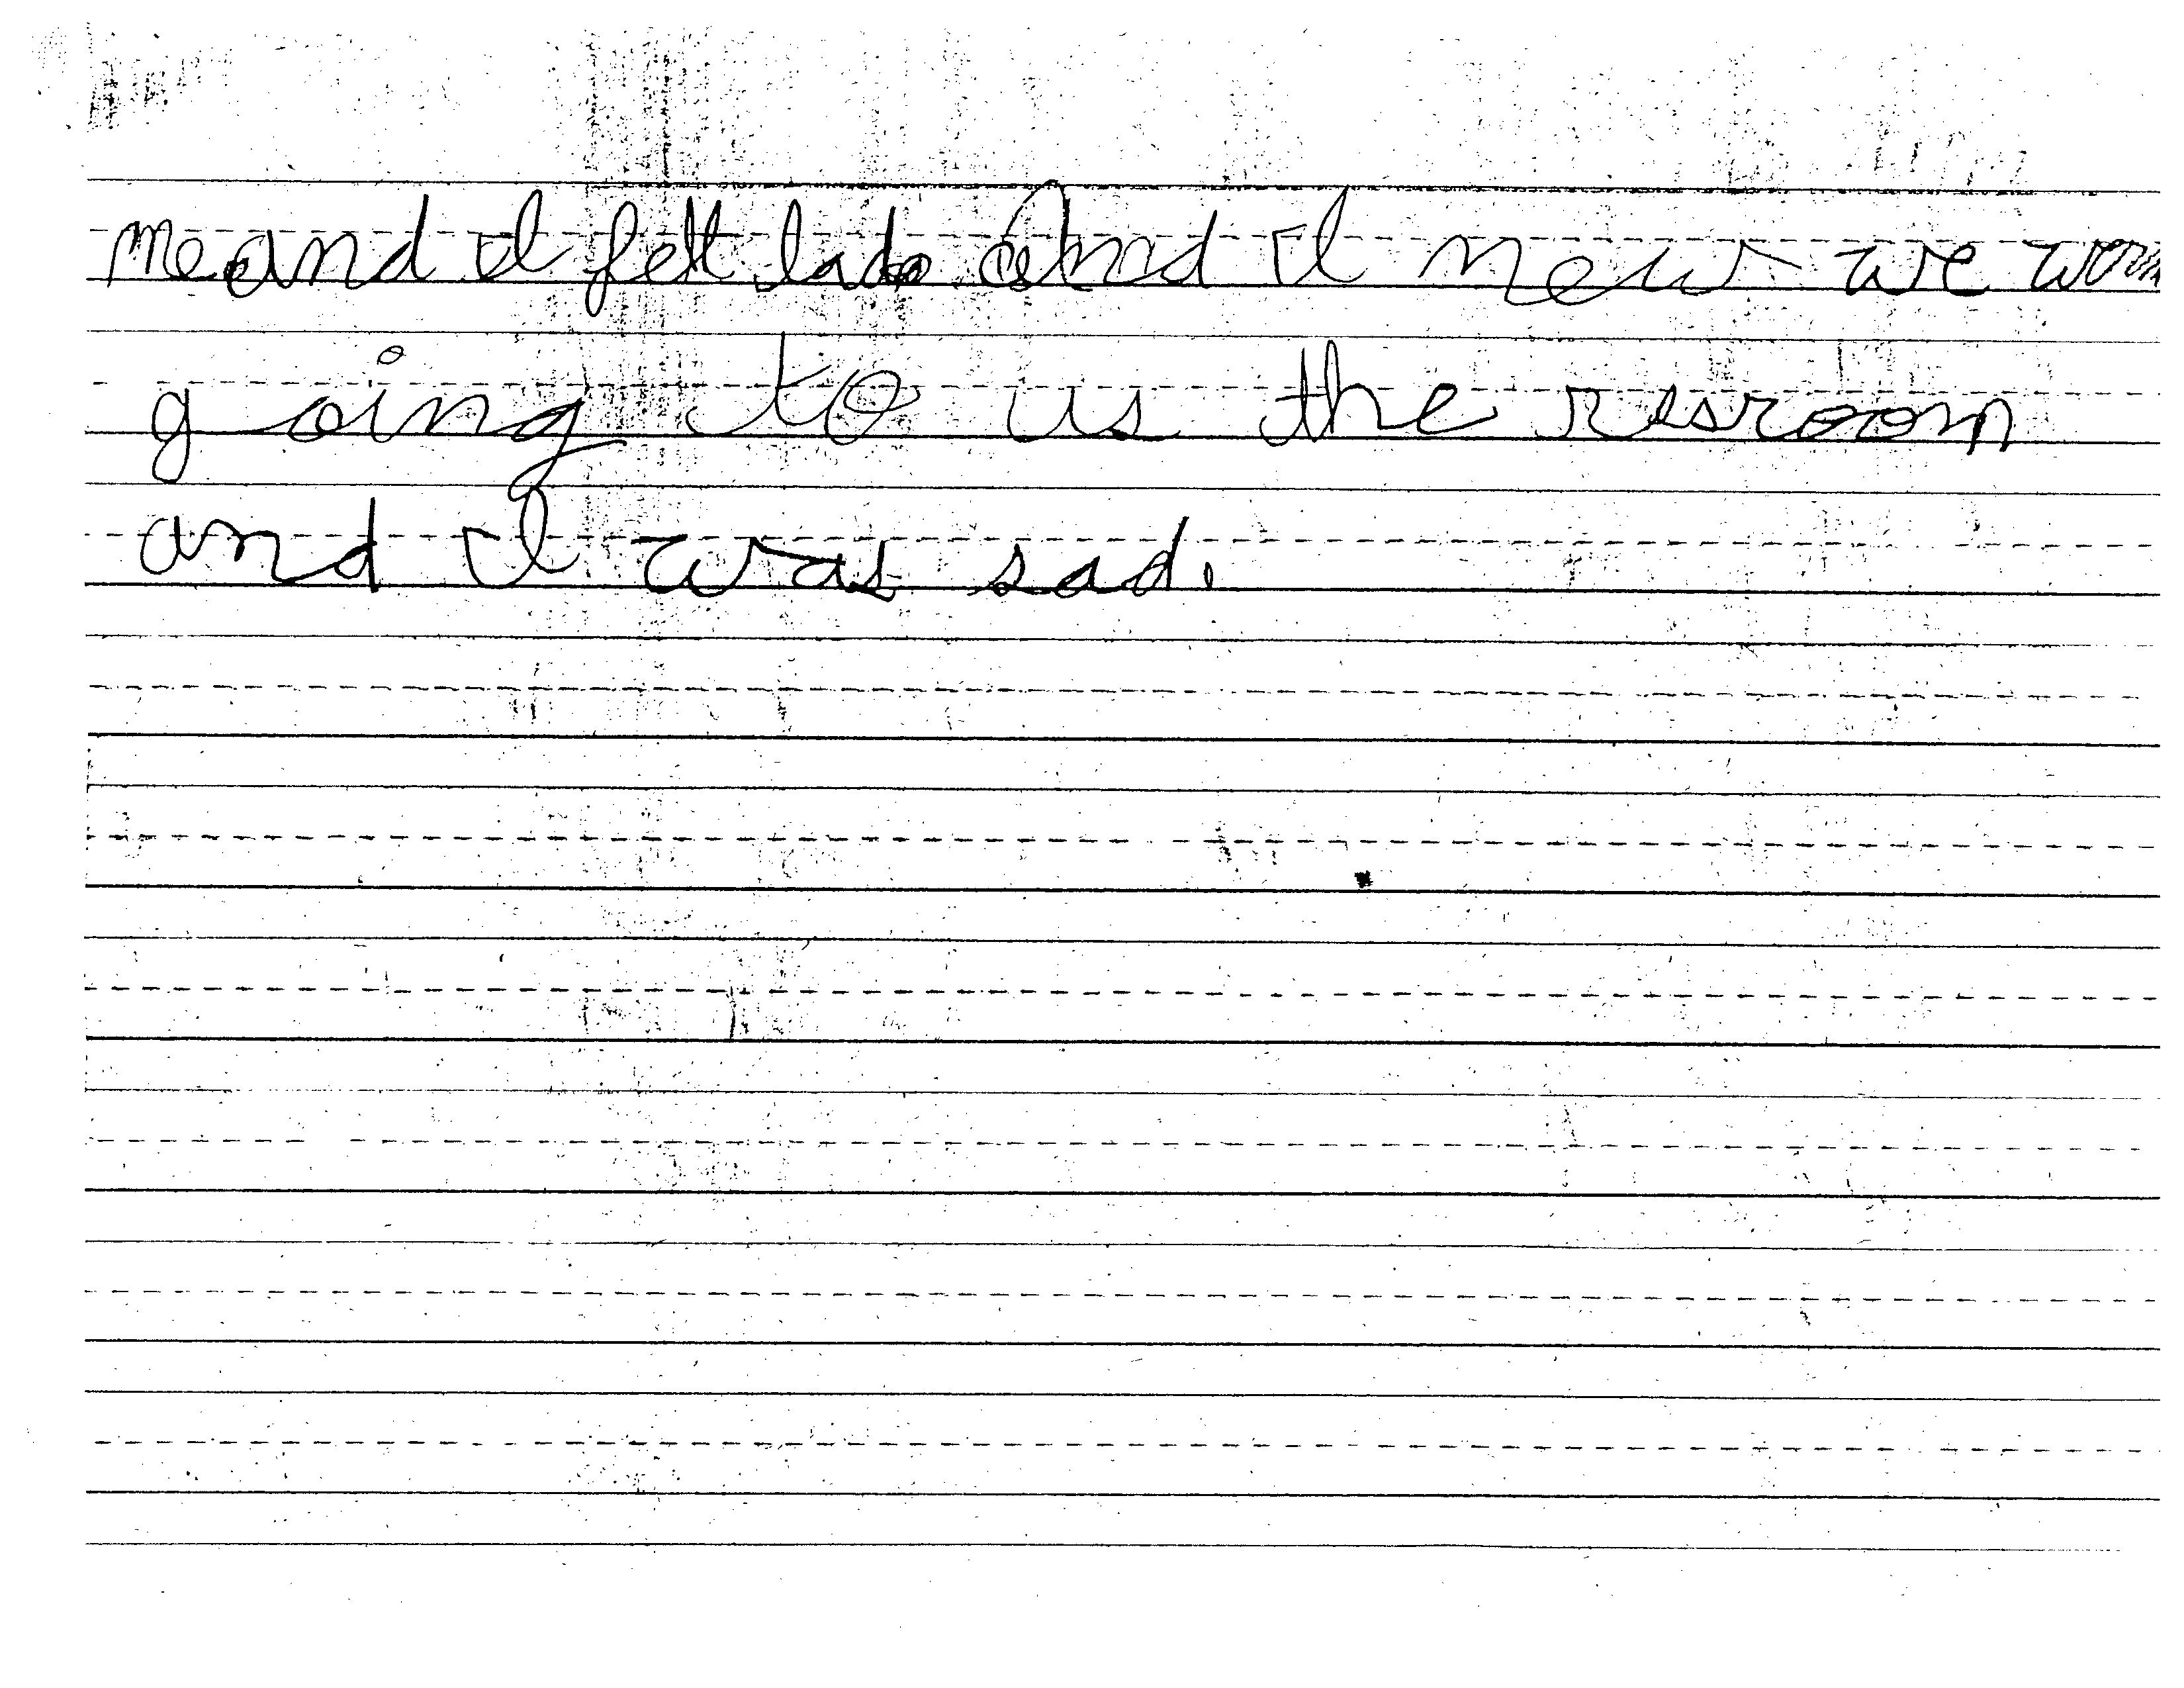 me and I felt And I new we
going to us the resroom
and I was sad.